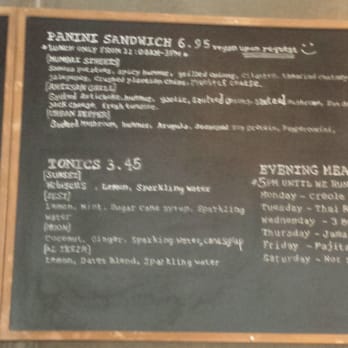 PANINI SANDWICH 6.95 vegan upon request
*LUNCH ONLY FROM 11:00AM-3PM*
[MUMBAI STREETS]
Samosa potatoes, spicy hummus, grilled onions, cilantro, tamarind chutney
jalapenos, crushed plantain chips,
[ARTISAN GRILL]
Grilled Artichoke, hummus, garlic, Sauteed onions, Sauteed mushroom, Sun d
jack cheese, fresh tomatoe.
[URBAN PEPPER]
mushroom, hummus, Arugula, seasoned soy protein, Pepperoncini,
TONICS 3.45
[SUNSET]
Hibiscus, Lemon, Sparkling Water
[ZEST]
Lemon, Mint, Sugar cane syrup, Sparkling
water
[MOON]
Coconut, Ginger, Sparkling Water, canesyrup
Lemon, Dates Blend, Sparkling water
EVENING MEA
*5PM UNTIL WE RUN
Monday - Creole
Tuesday - Thai
Wednesday - 3
Thursday - Jama
Friday - Fajita
Saturday - Hot